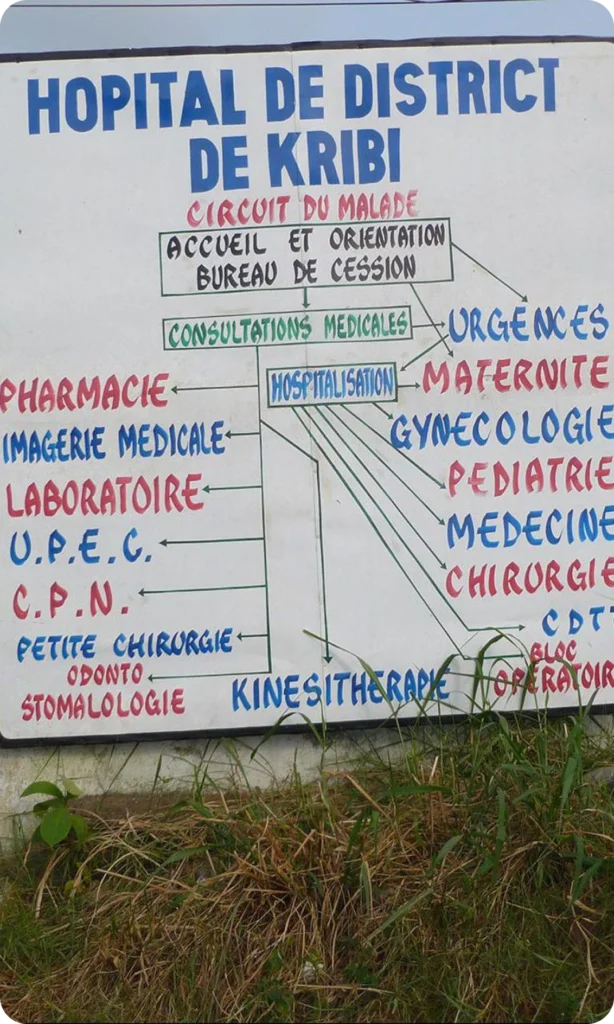 HOPITAL DE DISTRICT
DE KRIBI
CIRCUIT DU MALADE
ACCUEIL ET ORIENTATION
BUREAU DE CESSION
CONSULTATIONS MEDICALES
URGENCES
HOSPITALISATION
MATERNITE
PHARMACIE
GYNECOLOGIE
IMAGERIE MEDICALE
PEDIATRIE
LABORATOIRE
MEDECINE
U.P.E.C.
CHIRURGIE
C.P.N.
CDT
PETITE CHIRURGIE
BLOC
OPERATOIR
ODONTO
STOMALOLOGIE
KINESITHERAPIE